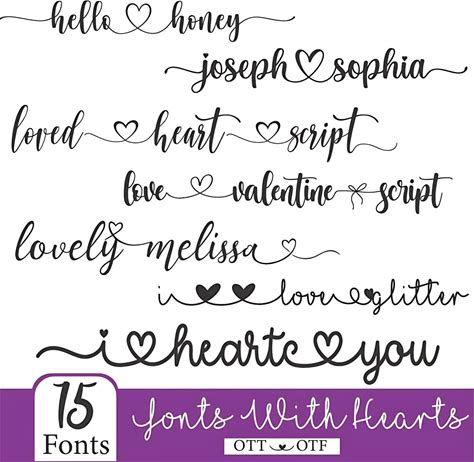 hello honey
joseph sophia
loved heart script
love valentine script
lovely melissa
i love glitter
i heartc you
15
Fonts
Fonts With Hearts
OTT OTF